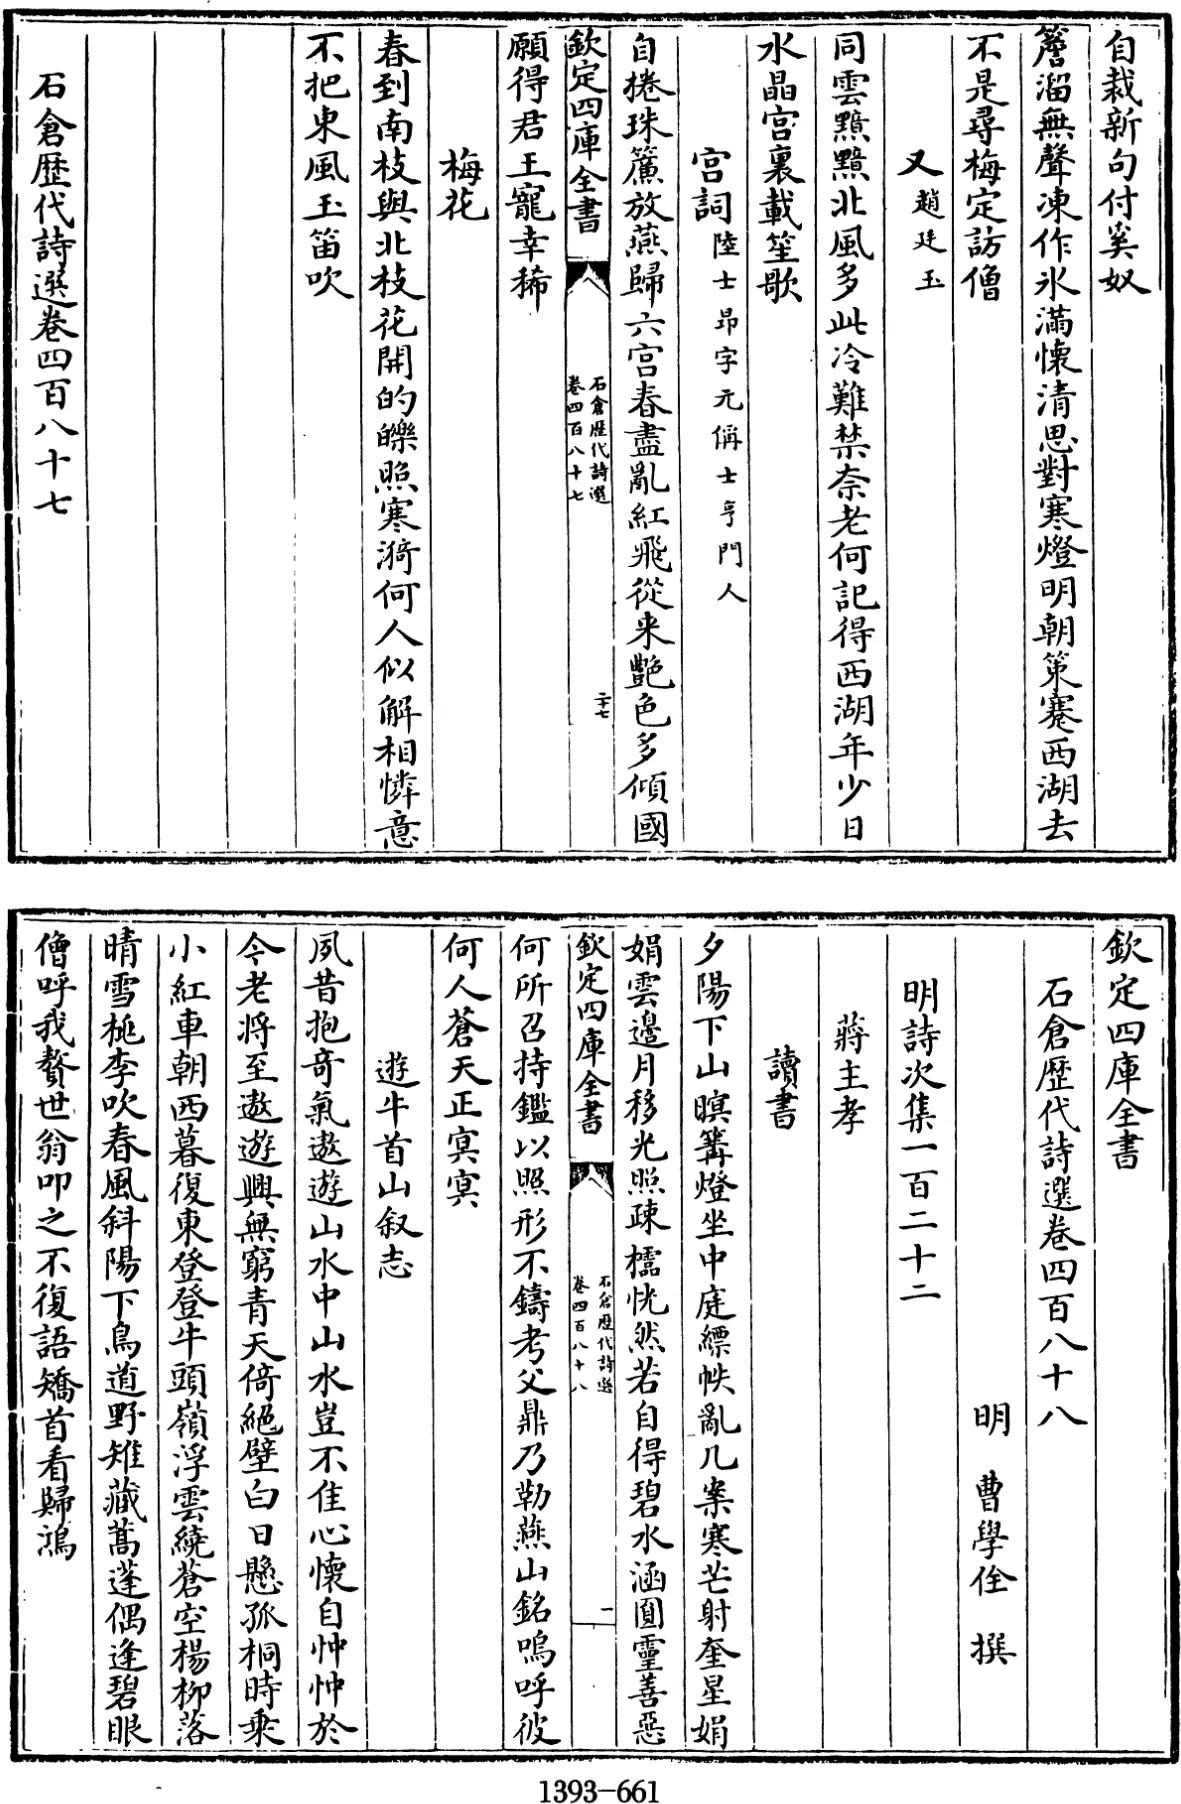 自裁新句付奚奴
簷溜無聲凍作氷滿懷清思對寒燈明朝策蹇西湖去
不是尋梅定訪僧
又趙廷玉
同雲黯黯北風多此冷難禁奈老何記得西湖年少日
水晶宫裏載笙歌
宫詞陸士昂字元偁士亨門人
自捲珠簾放燕歸六宫春盡亂紅飛從来艶色多傾國
欽定四庫全書
石倉歴代詩選
卷四百八十七
二十七
願得君王寵幸稀
梅花
春到南枝與北枝花開的皪照寒漪何人似解相憐意
不把東風玉笛吹
石倉歴代詩選卷四百八十七
欽定四庫全書
石倉歴代詩選卷四百八十八
明 曹學佺 撰
明詩次集一百二十二
蔣主孝
讀書
夕陽下山暝篝燈坐中庭縹帙亂几案寒芒射奎星娟
娟雲邊月移光照疎櫺恍然若自得碧水涵圓靈善惡
欽定四庫全書
石倉歴代詩選
卷四百八十八
一
何所召持鑑以照形不鑄考父鼎乃勒燕山銘嗚呼彼
何人蒼天正冥冥
遊牛首山叙志
夙昔抱竒氣遨遊山水中山水豈不佳心懷自忡忡於
今老将至遨遊興無窮青天倚絶壁白日懸孤桐時乘
小紅車朝西暮復東登登牛頭嶺浮雲繞蒼空楊柳落
晴雪桃李吹春風斜陽下鳥道野雉藏蒿蓬偶逢碧眼
僧呼我贅世翁叩之不復語矯首看歸鴻
1393-661